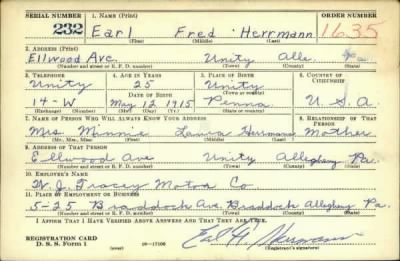 SERIAL NUMBER 1. NAME (Print) ORDER NUMBER
232 Earl Fred Herrmann 1635
(First) (Middle) (Last)
2. ADDRESS (Print)
Ellwood Ave. Unity Alle. Pa.
(Number and street or R. F. D. number) (Town) (County) (State)
3. TELEPHONE 4. AGE IN YEARS 5. PLACE OF BIRTH 6. COUNTRY OF CITIZENSHIP
Unity 25 Unity
DATE OF BIRTH (Town or county)
14-W May 12 1915 Penna. U. S. A.
(Exchange) (Number) (Mo.) (Day) (Yr.) (State or country)
7. NAME OF PERSON WHO WILL ALWAYS KNOW YOUR ADDRESS 8. RELATIONSHIP OF THAT PERSON
Mrs. Minnie Laura Herrmann Mother
(Mr., Mrs., Miss) (First) (Middle) (Last)
9. ADDRESS OF THAT PERSON
Ellwood Ave Unity Allegheny Pa.
(Number and street or R. F. D. number) (Town) (County) (State)
10. EMPLOYER'S NAME
W. J. Tracey Motor Co
11. PLACE OF EMPLOYMENT OR BUSINESS
5-25 Braddock Ave. Braddock Allegheny Pa.
(Number and street or R. F. D. number) (Town) (County) (State)
I AFFIRM THAT I HAVE VERIFIED ABOVE ANSWERS AND THAT THEY ARE TRUE.
REGISTRATION CARD
D. S. S. Form 1 (over) 16—17106 Earl F. Herrmann
(Registrant's signature)